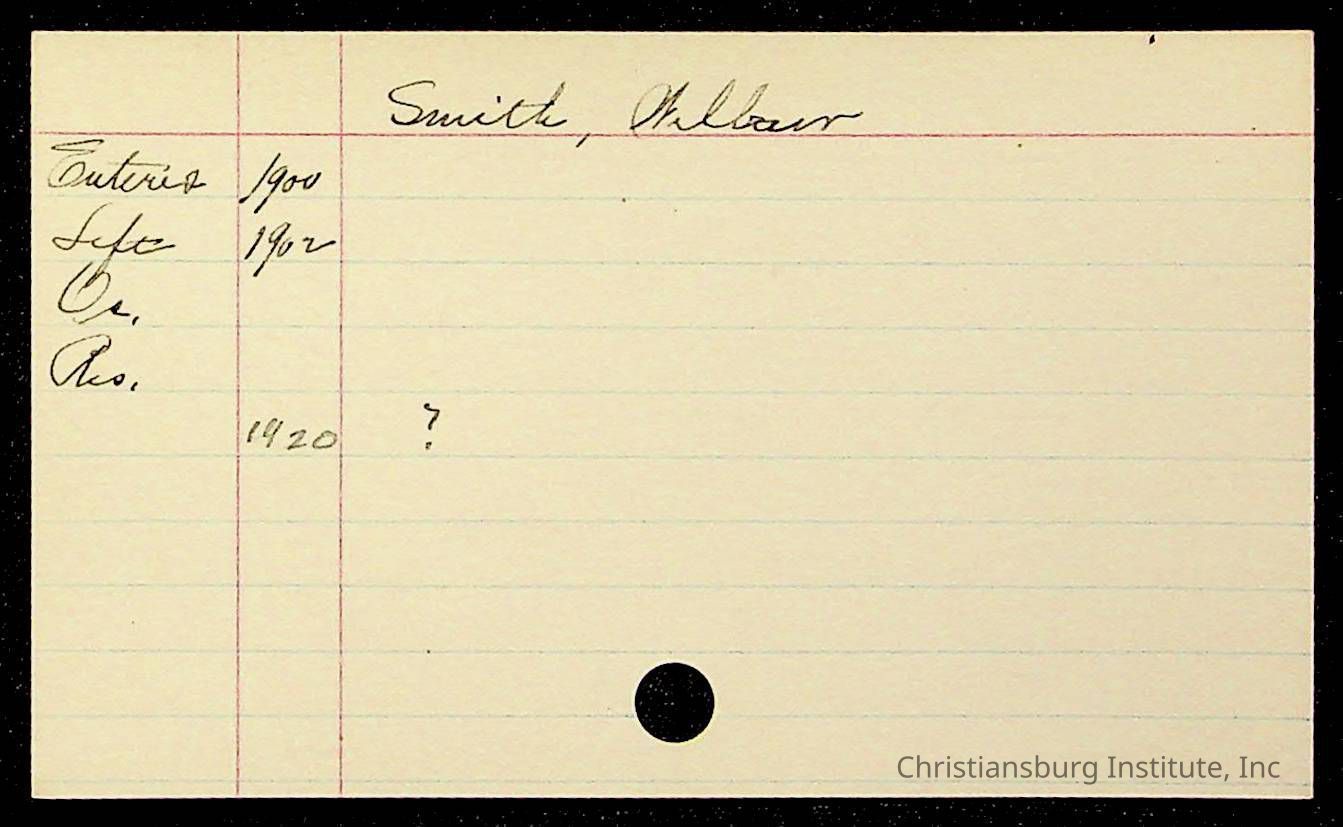 Smith, Wilbur
Entered 1900
Left 1902
Oc.
Res.
1920 ?
Christiansburg Institute, Inc